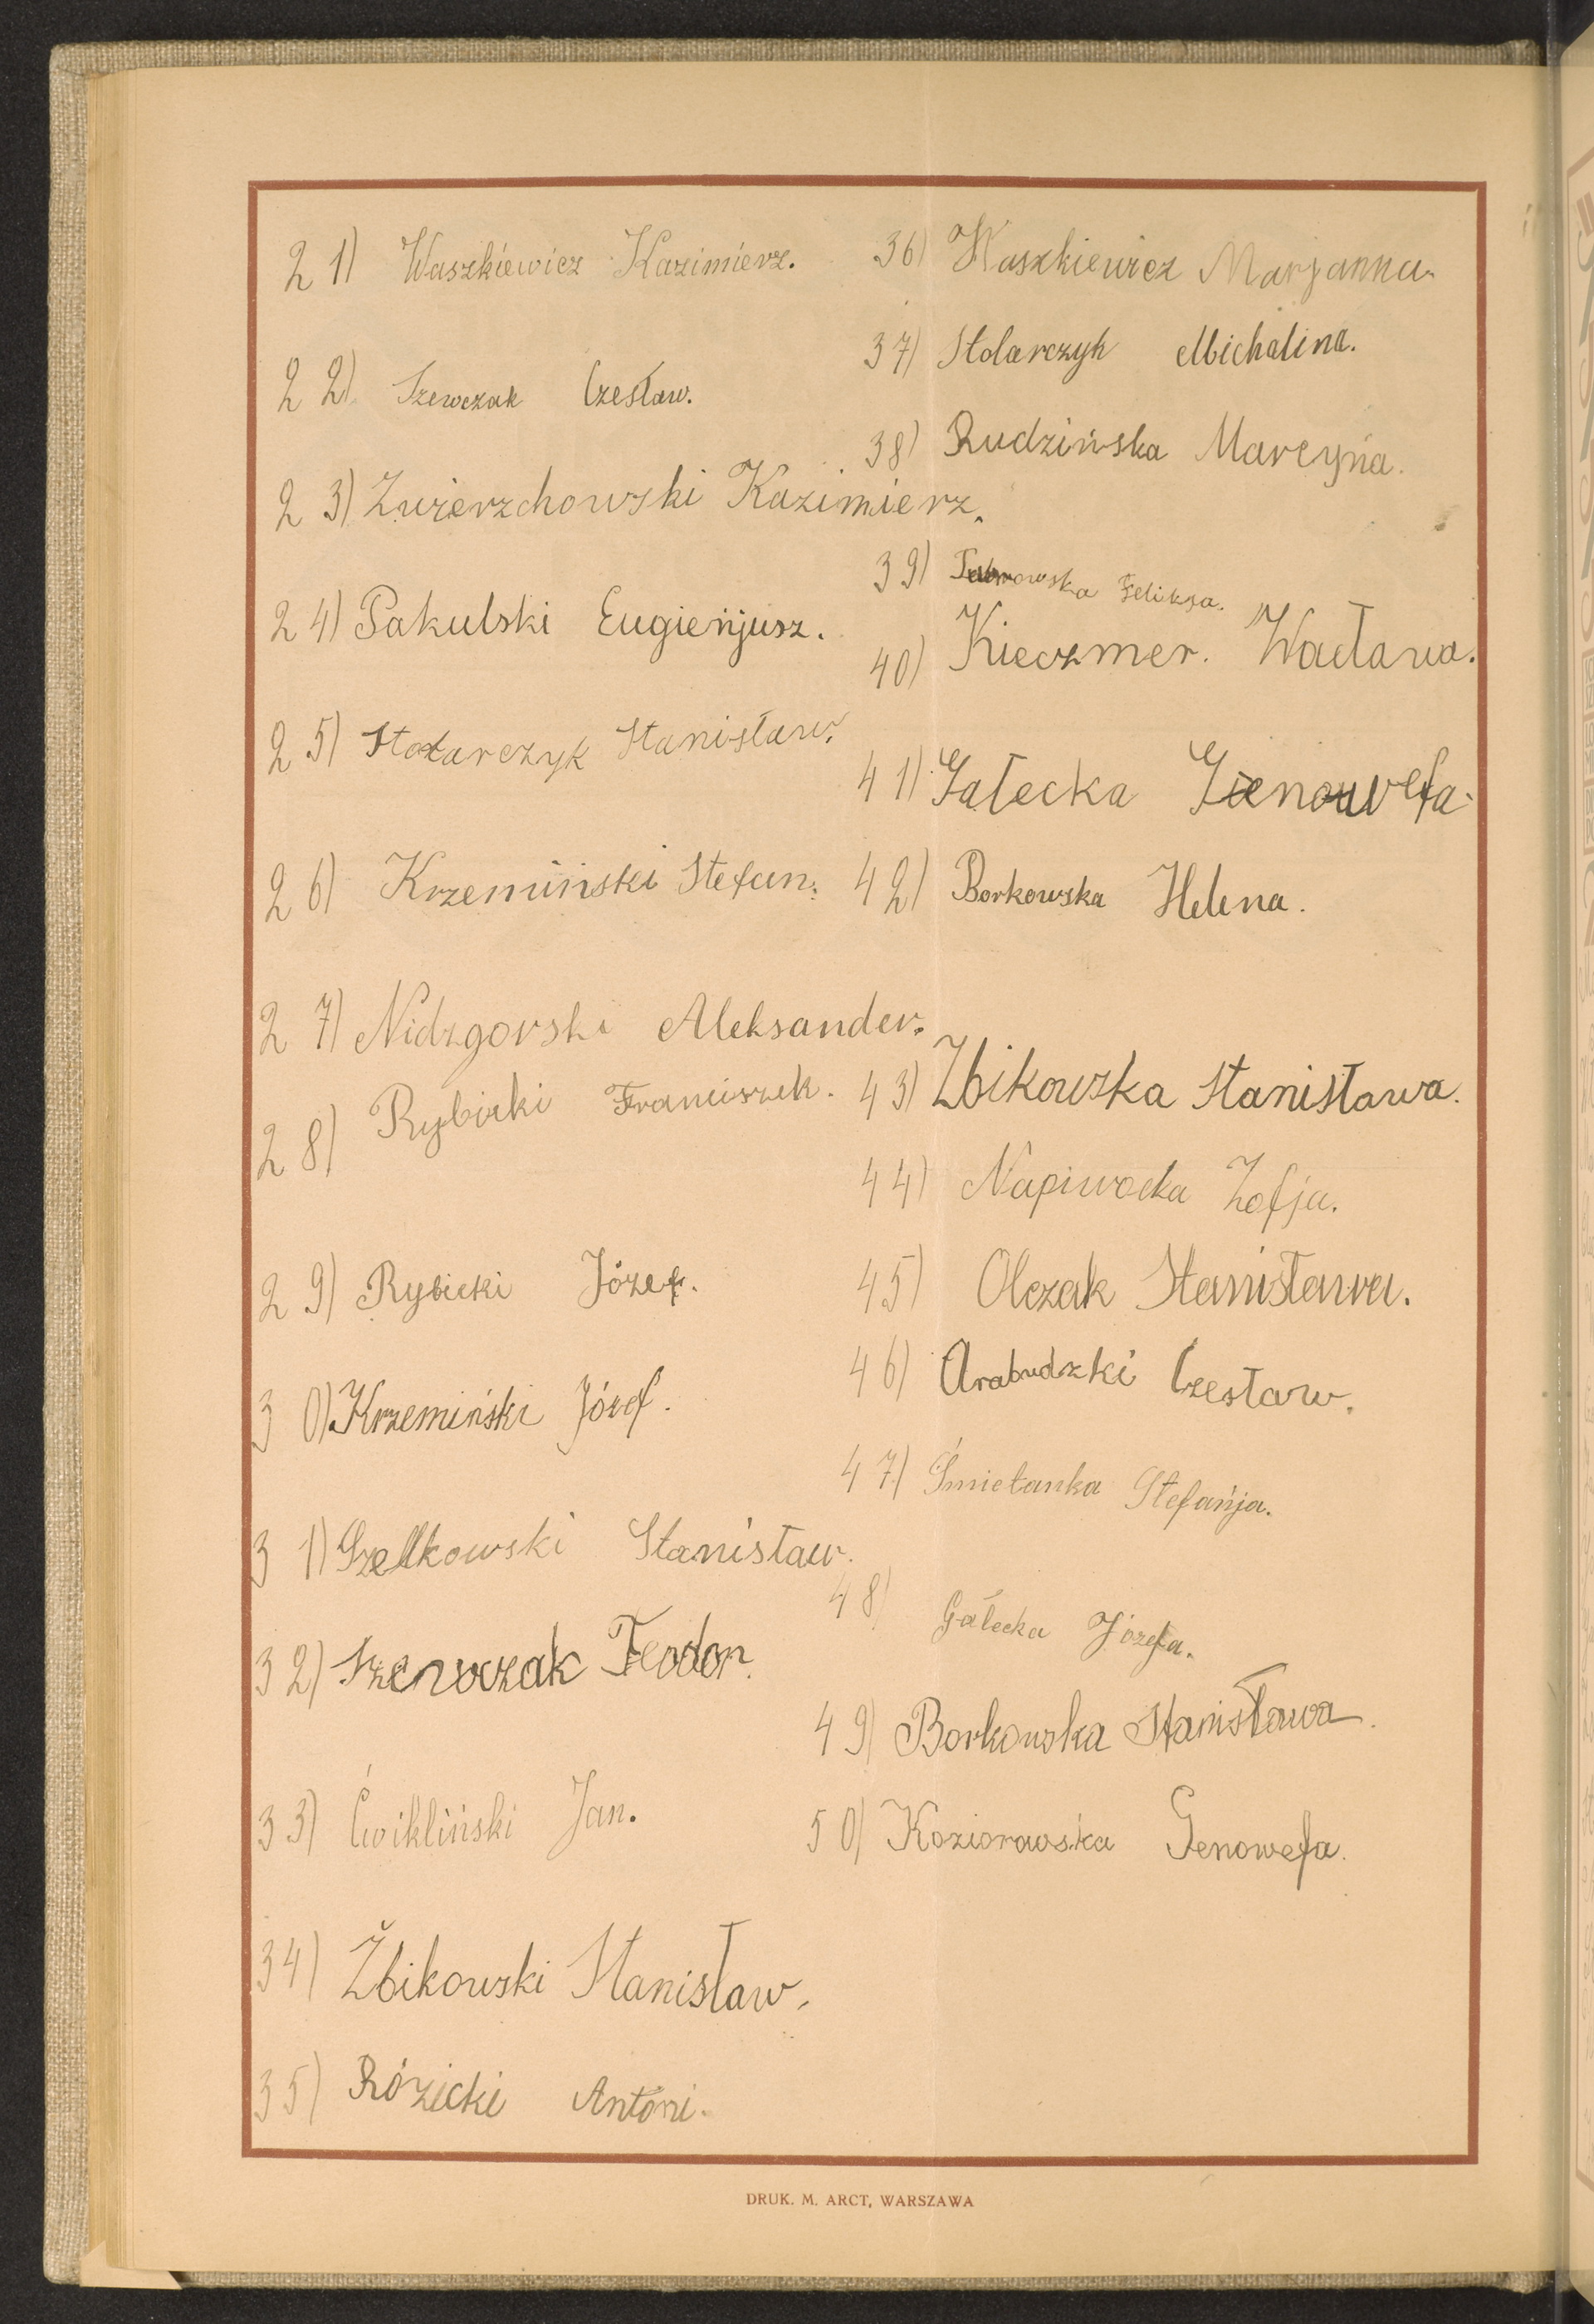 21) Waszkiewicz Kazimierz.
22) Szewczak Czesław.
23) Zwierzchowski Kazimierz.
24) Pakulski Eugieńjusz.
25) Stolarczyk Stanisław.
26) Krzemiński Stefan.
27) Nidzgorski Aleksander.
28) Rybicki Franciszek.
29) Rybicki Józef.
30) Krzemiński Józef.
31) Szelkowski Stanisław.
32) Szewczak Teodor.
33) Ćwikliński Jan.
34) Żbikowski Stanisław.
35) Rózicki Antoni.
36) Waszkiewicz Marjanna.
37) Stolarczyk Michalina.
38) Rudzińska Marcyna.
39) Feliksa.
40) Kieczmer. Wacława.
41) Gałecka Gienowefa.
42) Borkowska Helena.
43) Zbikowska Stanisława.
44) Napiwocka Zofja.
45) Olczak Stanisława.
46) Arabudzki Czesław.
47) Śmietanka Stefańja.
48) Gałecka Józefa.
49) Borkowska Stanisława.
50) Koziorowska Genowefa.
DRUK. M. ARCT, WARSZAWA